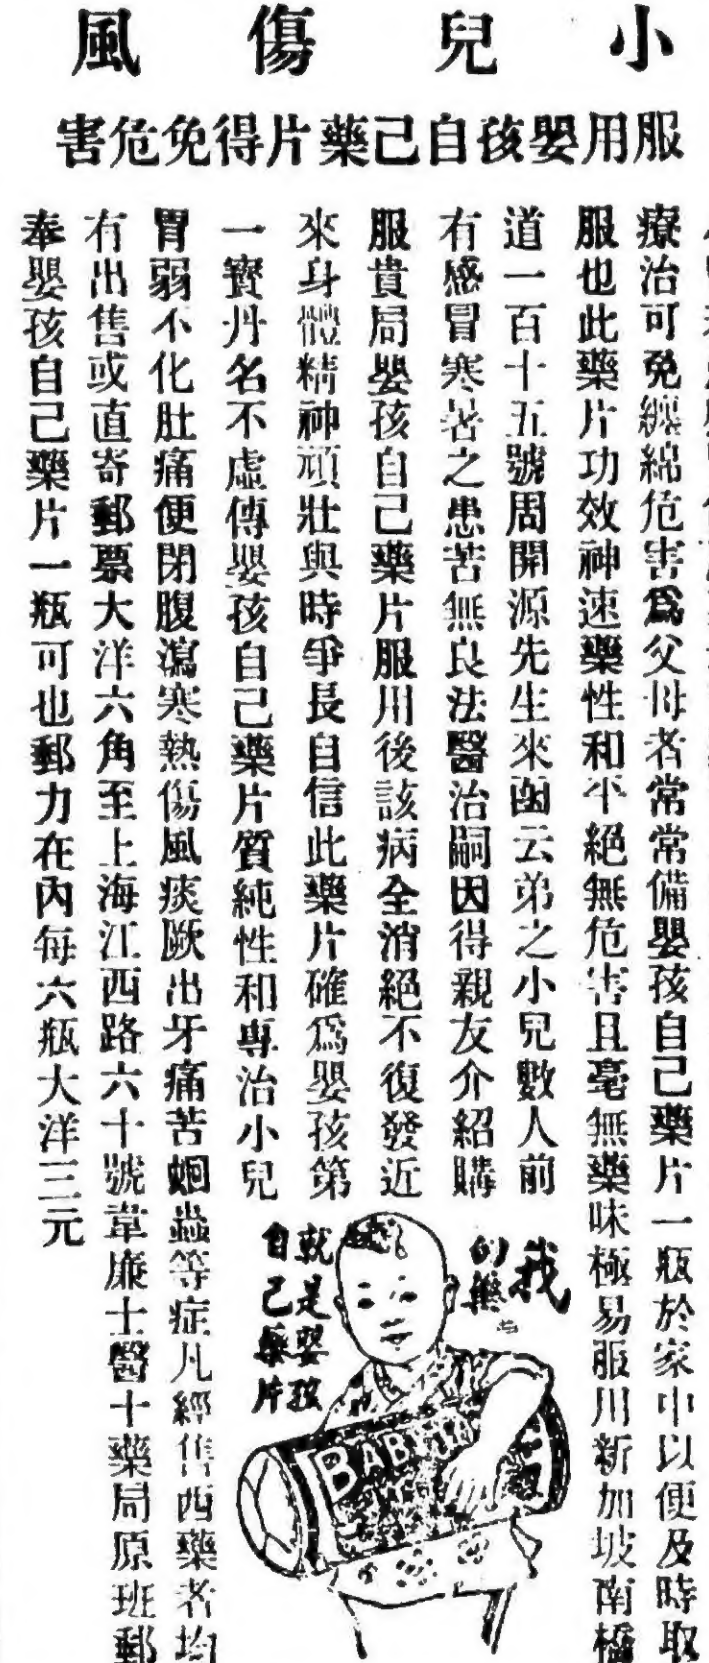 小兒傷風
服用嬰孩自己藥片得免危害
療治可免纏綿危害爲父母者常常備嬰孩自己藥片一瓶於家中以便及時取
服也此藥片功效神速藥性和平絕無危害且毫無藥味極易服用新加坡南橋
道一百十五號周開源先生來函云弟之小兒數人前
有感冒寒暑之患苦無良法醫治嗣因得親友介紹購
服貴局嬰孩自己藥片服用後該病全消絕不復發近
來身體精神頑壯與時爭長自信此藥片確爲嬰孩第
一寶丹名不虛傳嬰孩自己藥片質純性和專治小兒
胃弱不化肚痛便閉腹瀉寒熱傷風痰厥出牙痛苦蛔蟲等症凡經售西藥者均
有出售或直寄郵票大洋六角至上海江西路六十號韋廉士醫生藥局原班郵
奉嬰孩自己藥片一瓶可也郵力在內每六瓶大洋三元
我
的藥
就是嬰孩
自己藥片
BABY